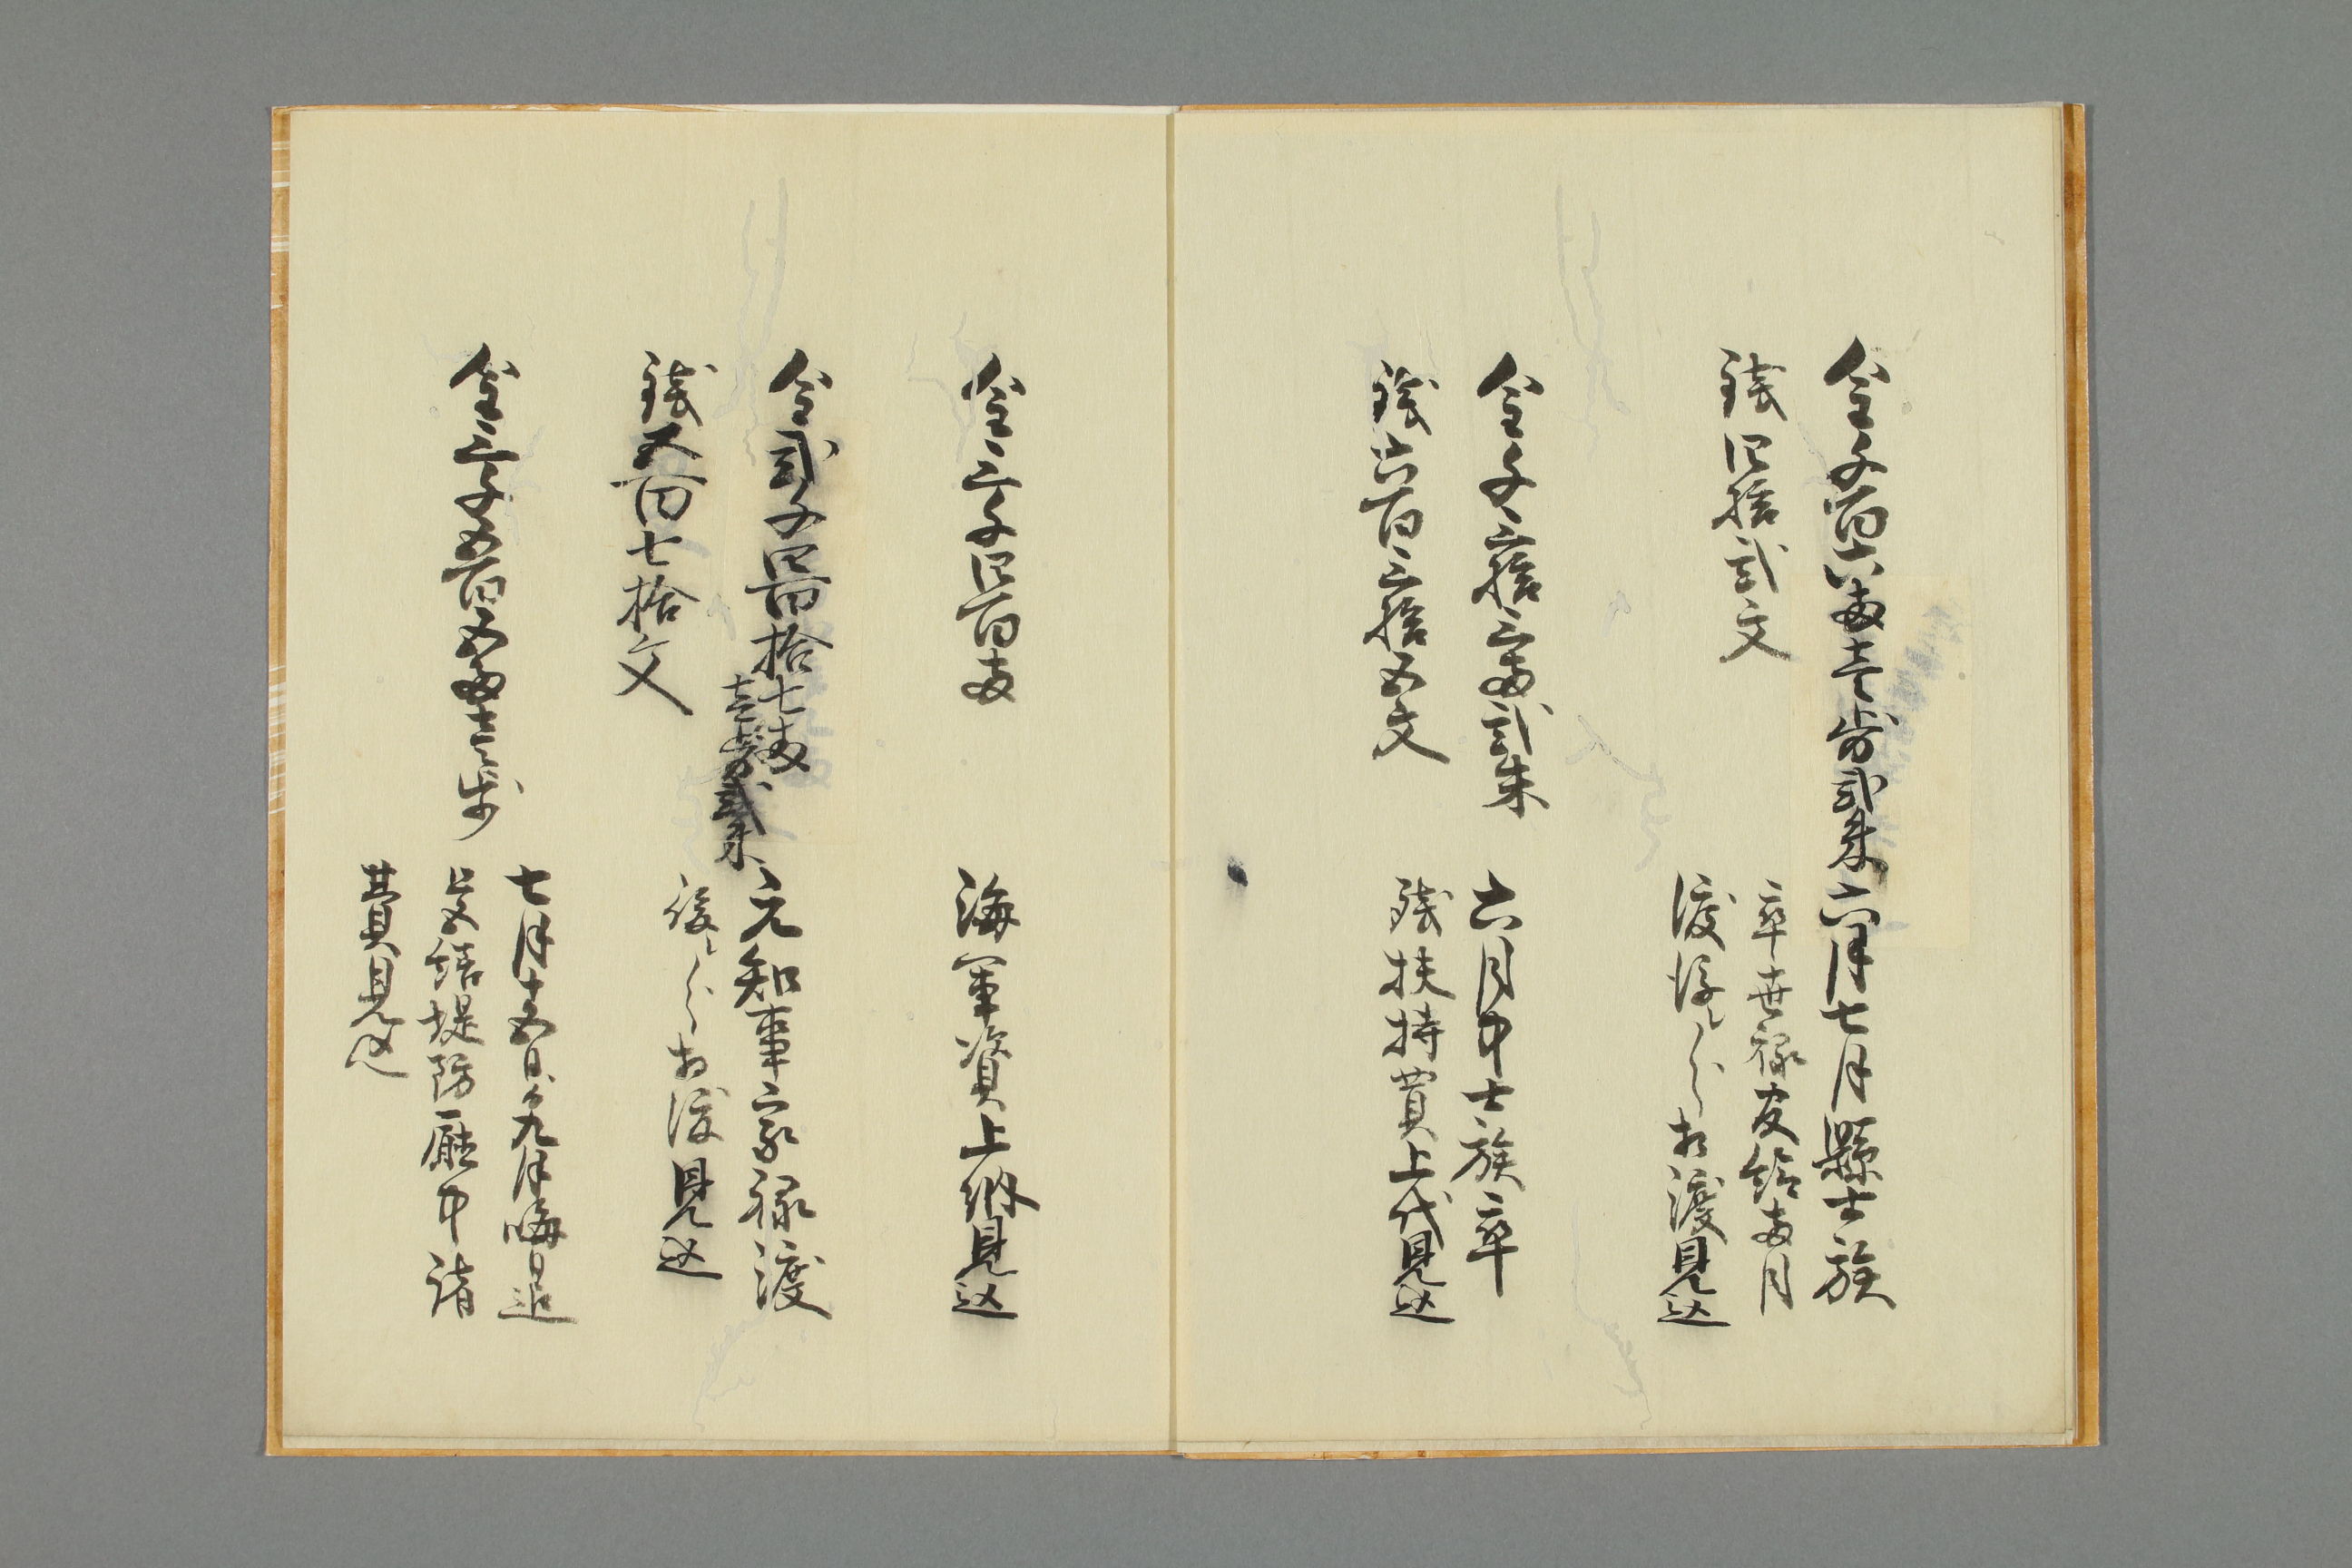 金千百六両壱歩弐朱
六月七月縣士族
銭四拾弐文
卒世禄皮給両月
渡後レ分相渡見込
金千三拾三両弐朱
六月中士族卒
銭六百三拾五文
残扶持費上代見込
金三千四百両
海軍資上納見込
金弐千四百拾七両
壱歩弐朱
元知事家禄渡
銭五百七拾文
後レ分相渡見込
金三千五百五両壱歩
七月十五日ゟ九月晦日迄
堤防廰中諸
費見込